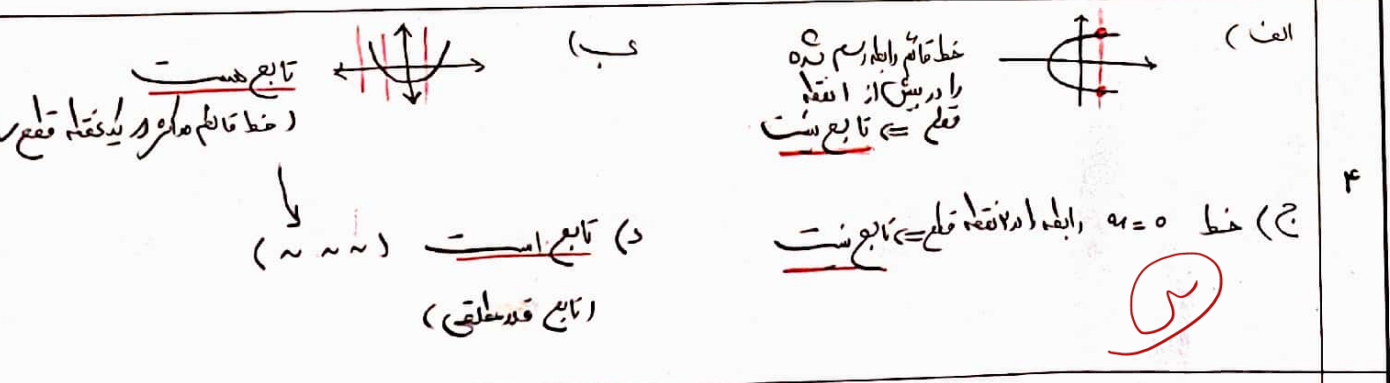 الف)
خط قائم رابطه رسم شده
را در بیش از ۱ نقطه
قطع => تابع نیست
ب)
تابع هست
(خط قائم حداکثر در یک نقطه قطع
ج) خط x=0 رابطه را در ۲ نقطه قطع => تابع نیست
د) تابع است (~ ~ ~)
(تابع قدرمطلقی)
۴